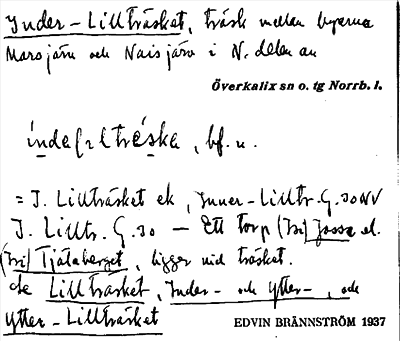 Inder-Lillträsket, träsk mellan byarna
Marsjärv och Naisjärv i N. delen av
Överkalix sn o. tg Norrb. l.
índe(r)ltrėska, bf. n.
= I. Lillträsket ek, Inner-Lilltr. G. 30 NV
I. Lilltr. G. 30 — Ett torp (bi) Jossa el.
(bi) Tjälaberget, ligger vid träsket.
de Lillträsket, Inder- och Ytter-, och
Ytter-Lillträsket
EDVIN BRÄNNSTRÖM 1937